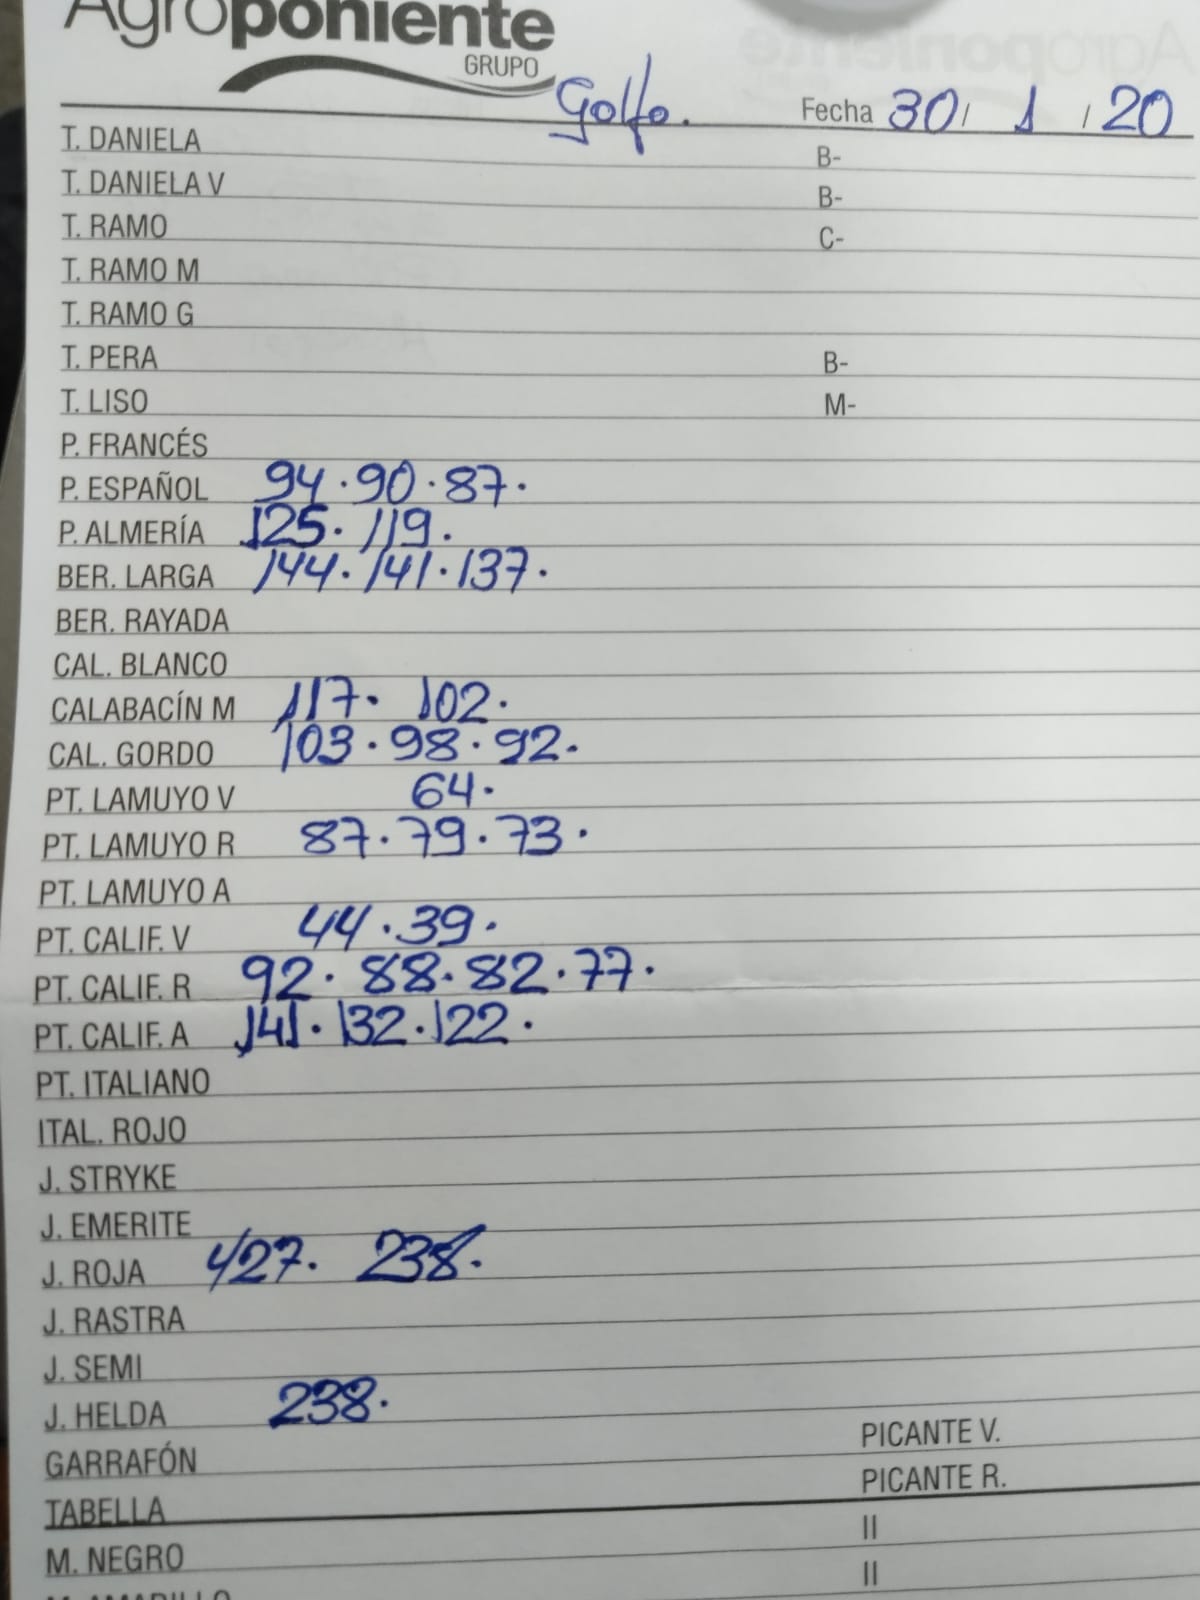 Agroponiente
GRUPO
Golfo. Fecha 30/ 1 / 20
T. DANIELA B-
T. DANIELA V B-
T. RAMO C-
T. RAMO M
T. RAMO G
T. PERA B-
T. LISO M-
P. FRANCÉS
P. ESPAÑOL 94·90·87·
P. ALMERÍA 125·119·
BER. LARGA 144·141·137·
BER. RAYADA
CAL. BLANCO
CALABACÍN M 117· 102·
CAL. GORDO 103·98·92·
PT. LAMUYO V 64·
PT. LAMUYO R 87·79·73·
PT. LAMUYO A
PT. CALIF. V 44·39·
PT. CALIF. R 92·88·82·77·
PT. CALIF. A 141·132·122·
PT. ITALIANO
ITAL. ROJO
J. STRYKE
J. EMERITE
J. ROJA 427· 238·
J. RASTRA
J. SEMI
J. HELDA 238·
GARRAFÓN PICANTE V.
TABELLA PICANTE R.
M. NEGRO II
M. AMARILLO II